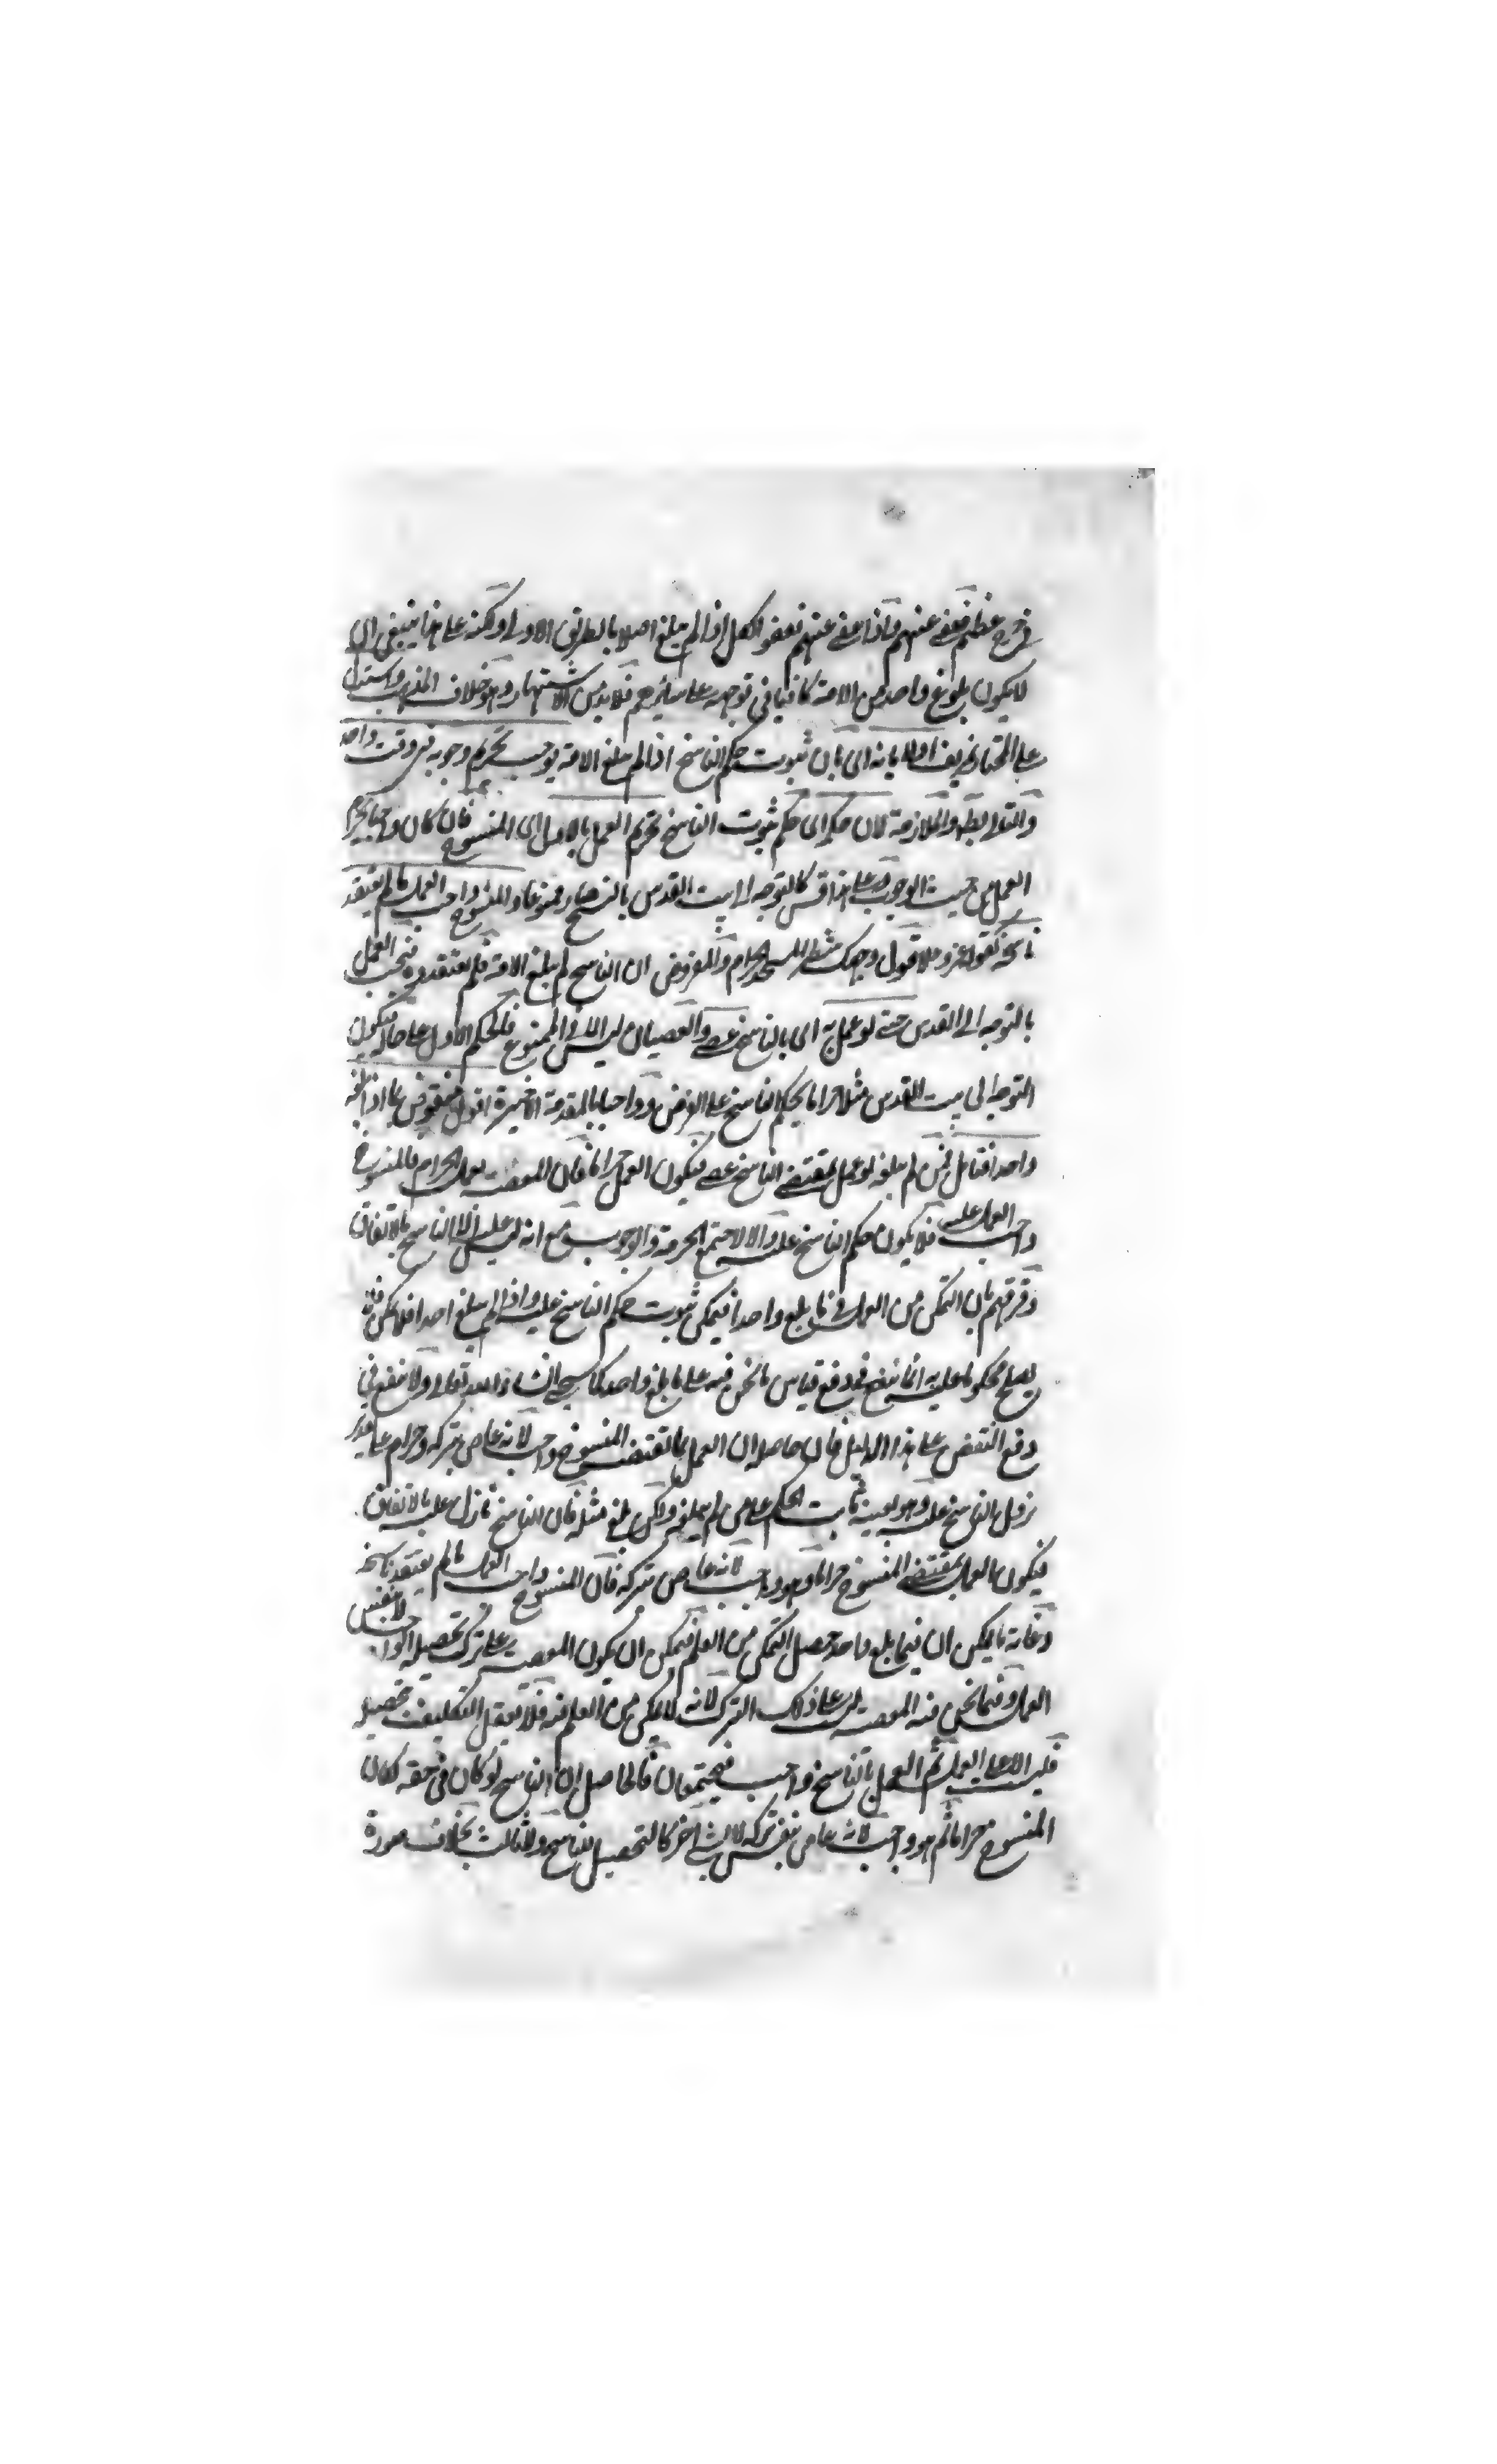 حرج عظيم فعفى عنهم واذا عفى عنهم فعفو الكل اذا لم يبلغ اصلا بالطريق الاولى ولكنه على هذا ينبغي ان
لا يكون بلوغ واحد من الامة كافيا في توجهه على سائرهم فلا بد من الاشتهار وهو خلاف المذهب واستدل
على المختار اولا بانه اى بان ثبوت حكم الناسخ اذا لم يبلغ الامة يوجب تحريم وجوبه في وقت واحد
والتالي بط والملازمة لان حكم اى حكم ثبوت الناسخ تحريم العمل بالاول اى المنسوخ فان كان واجبا يحرم
العمل من حيث الوجوب وعلى هذا قس كالتوجه الى بيت القدس بالنسخ صار ممنوعا والمنسوخ واجب العمل ما لم يعتقد
ناسخه كقوله عز وعلا فول وجهك شطر المسجد الحرام والمفروض ان الناسخ لم يبلغ الامة فلم يعتقدوه فيجب العمل
بالتوجه الى القدس حتى لو عمل به اى بالناسخ عصى والعصيان ليس الا في الممنوع فالحكم الاول على حاله فيكون
التوجه الى بيت القدس مثلا حراما بحكم الناسخ على الفرض وواجبا بالمقدمة الاخيرة اقول منقوض بما اذا بلغه
واحدا فقابل فمن لم يبلغه لو عمل بمقتضى الناسخ عصى فيكون العمل حراما فان المعصية بعمل الحرام فالمنسوخ
واجب العمل عليه فلا يكون حكم الناسخ عليه والا لاجتمع الحرمة والوجوب مع انه ليس عليه الا الناسخ بالاتفاق
وفرقهم بان التمكن من العمل في ما بلغ واحدا فيمكن ثبوت حكم الناسخ عليه واذا لم يبلغ احدا فلا يمكن فلا
يصلح محكوما عليه انما ينفع في دفع قياس ما نحن فيه على ما بلغ واحدا كما سيجئ ان شاء الله تعالى ولا ينفع في
دفع النقض على هذا الدليل فان حاصله ان العمل بما يقتضيه المنسوخ واجب لانه عاص بتركه وحرام على تقدير
نزول الناسخ عليه وهو بعينه ثابت الحكم على من لم يبلغه ولكن بلغ مثله فان الناسخ نازل عليه بالاتفاق
فيكون العمل بمقتضى المنسوخ حراما وهو واجب لانه عاص بتركه فان المنسوخ واجب العمل ما لم يعتقد ناسخه
وغاية ما يمكن ان فيما بلغ واحد حصل التمكن من العلم فيمكن ان يكون المعصية على ترك تحصيله الواجب لا بنفس
العمل وفيما نحن فيه المعصية ليست على ذلك الترك لانه لا يمكن من العلم فيه فلا يعقل التكليف بتحصيله
فليست الا على العمل ثم العمل بالناسخ واجب فيجتمعان فالحاصل ان الناسخ لو كان في حقه لكان
المنسوخ حراما ثم هو واجب لانه عاص بنفس تركه لا لشئ آخر كالتحصيل للناسخ ولا ثالث بخلاف صورة